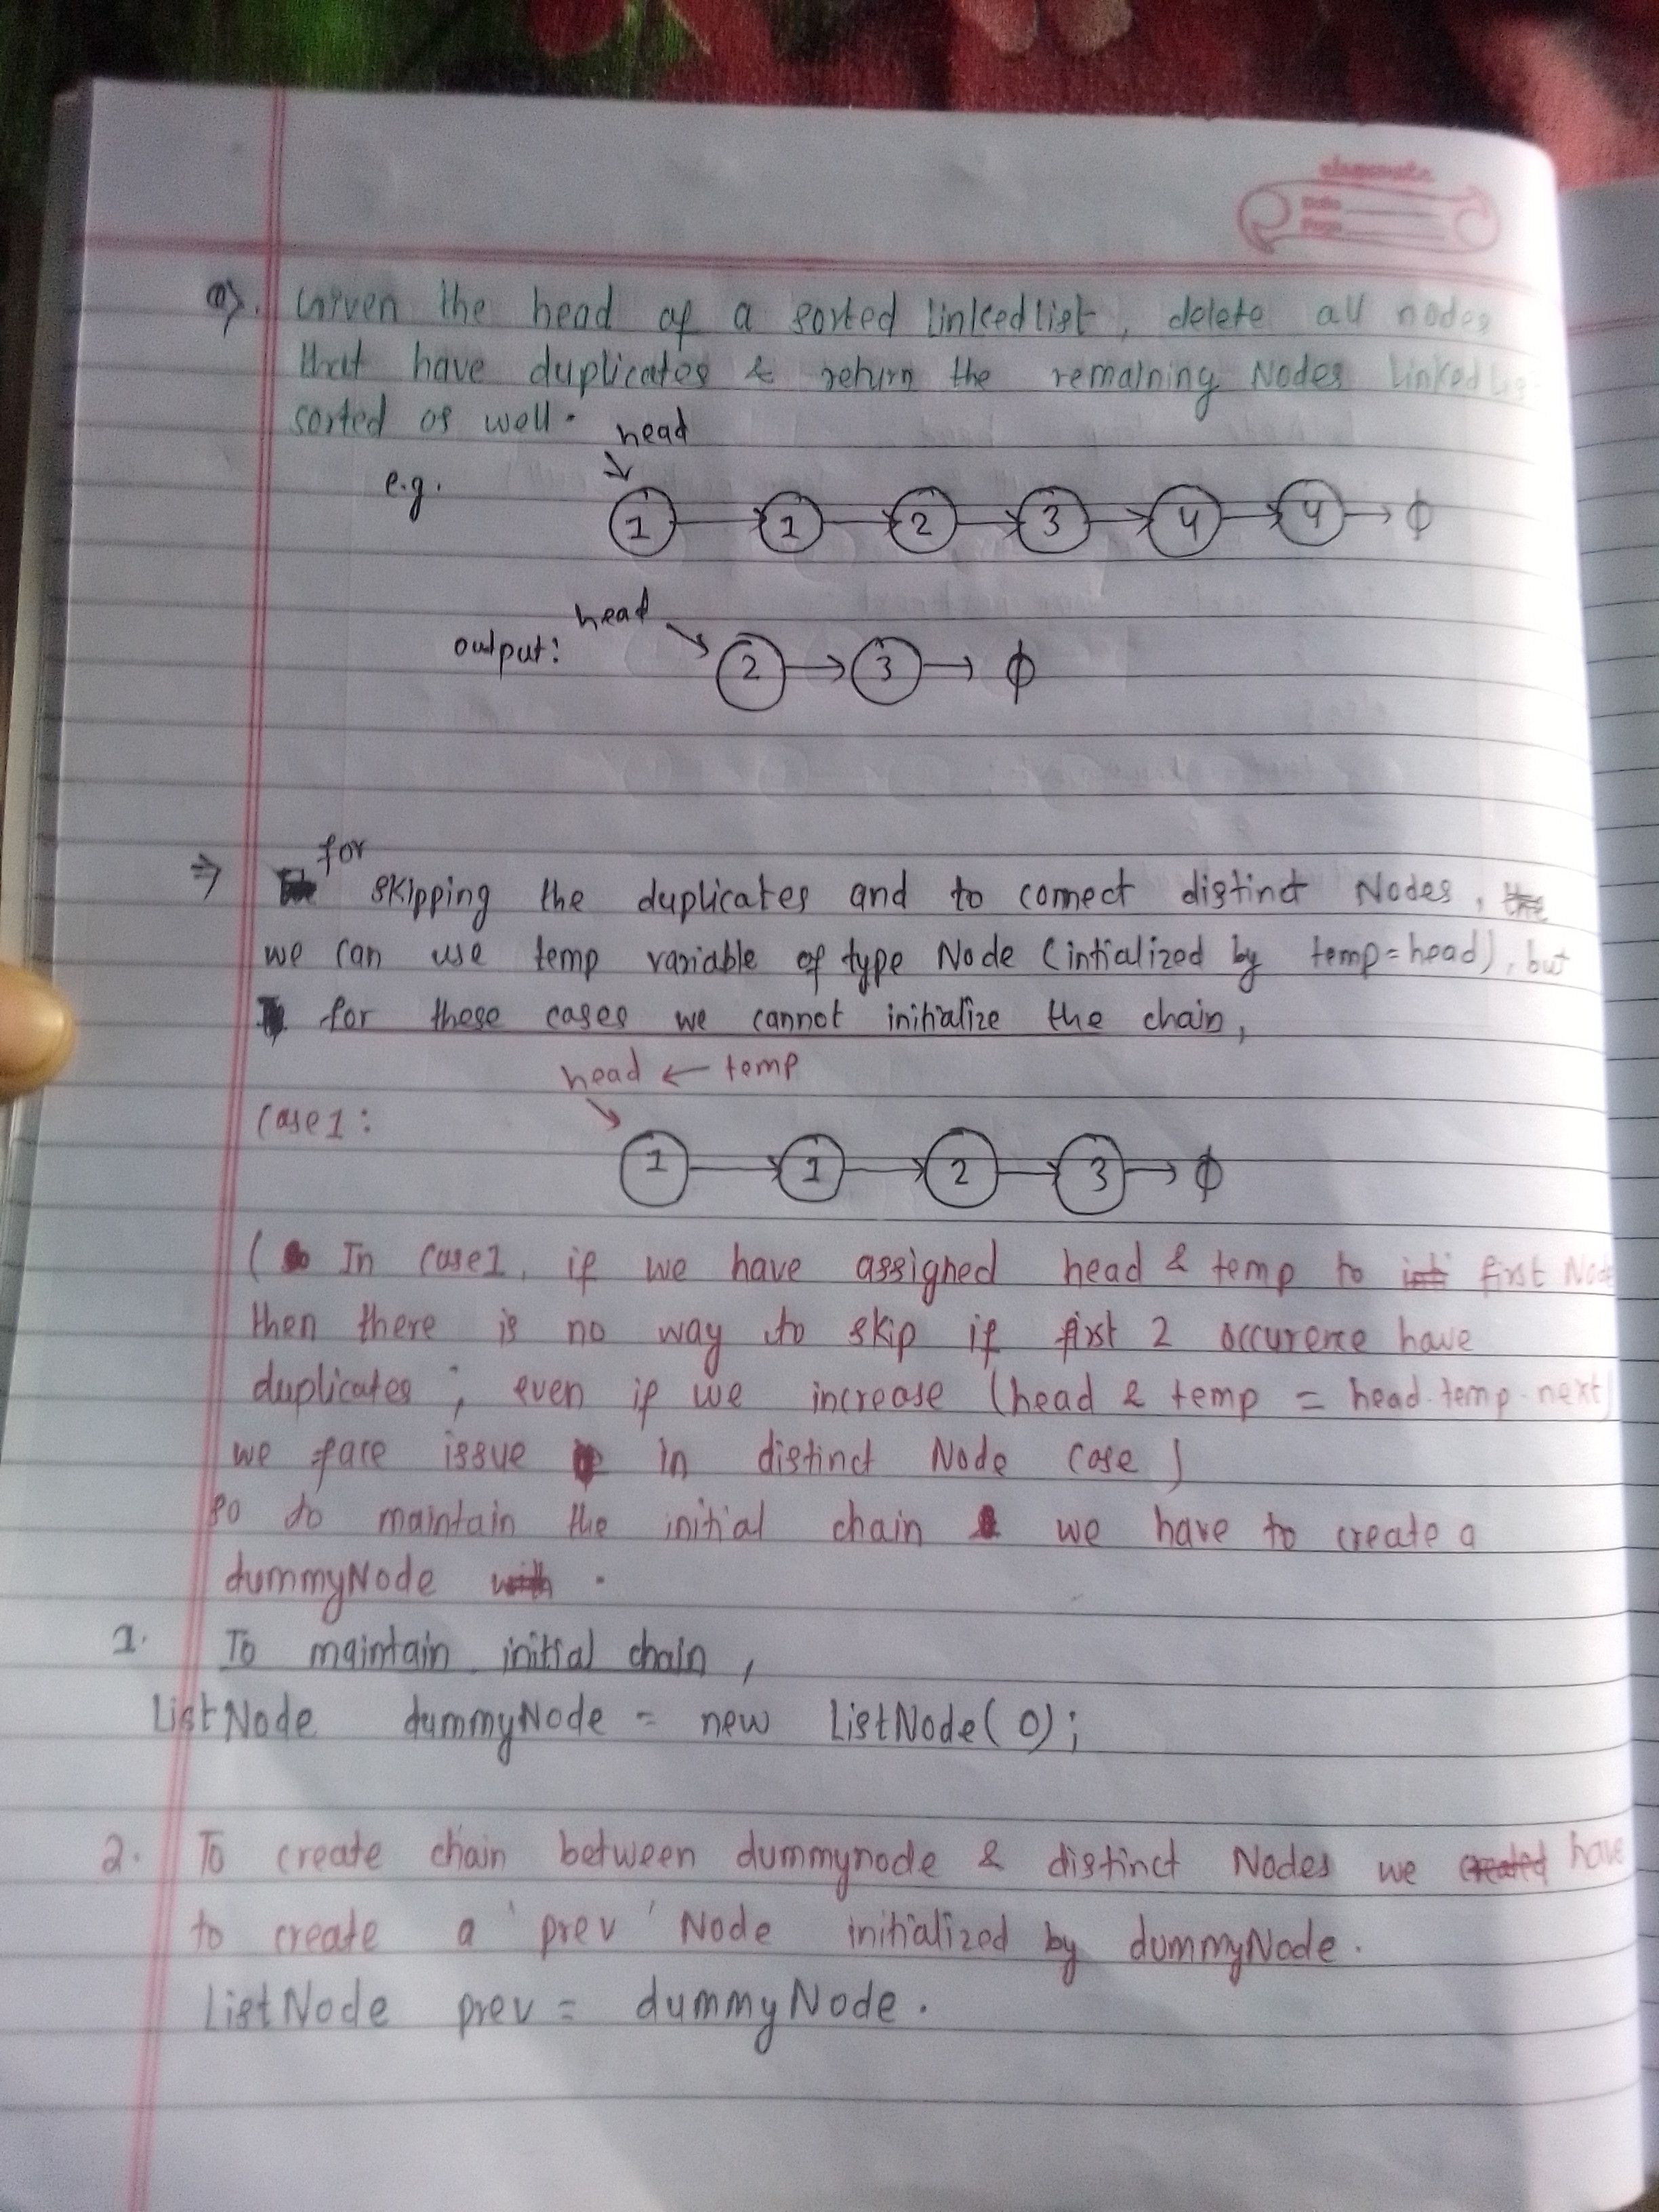 classmate
Date
Page
Q). Given the head of a sorted linkedlist, delete all nodes
that have duplicates & return the remaining Nodes Linked
sorted as well.
head
e.g.
1 → 1 → 2 → 3 → 4 → 4 → ϕ
head
output:
2 → 3 → ϕ
⇒ for
skipping the duplicates and to connect distinct Nodes,
we can use temp variable of type Node (intialized by temp=head), but
for these cases we cannot initialize the chain,
head ← temp
Case1:
1 → 1 → 2 → 3 → ϕ
( In Case1, if we have assigned head & temp to first Node
then there is no way to skip if first 2 occurence have
duplicates ; even if we increase (head & temp = head.temp.next)
we face issue in distinct Node case )
so to maintain the initial chain we have to create a
dummyNode .
1. To maintain initial chain,
ListNode dummyNode = new ListNode(0);
2. To create chain between dummynode & distinct Nodes we have
to create a 'prev' Node initialized by dummyNode.
ListNode prev = dummyNode.